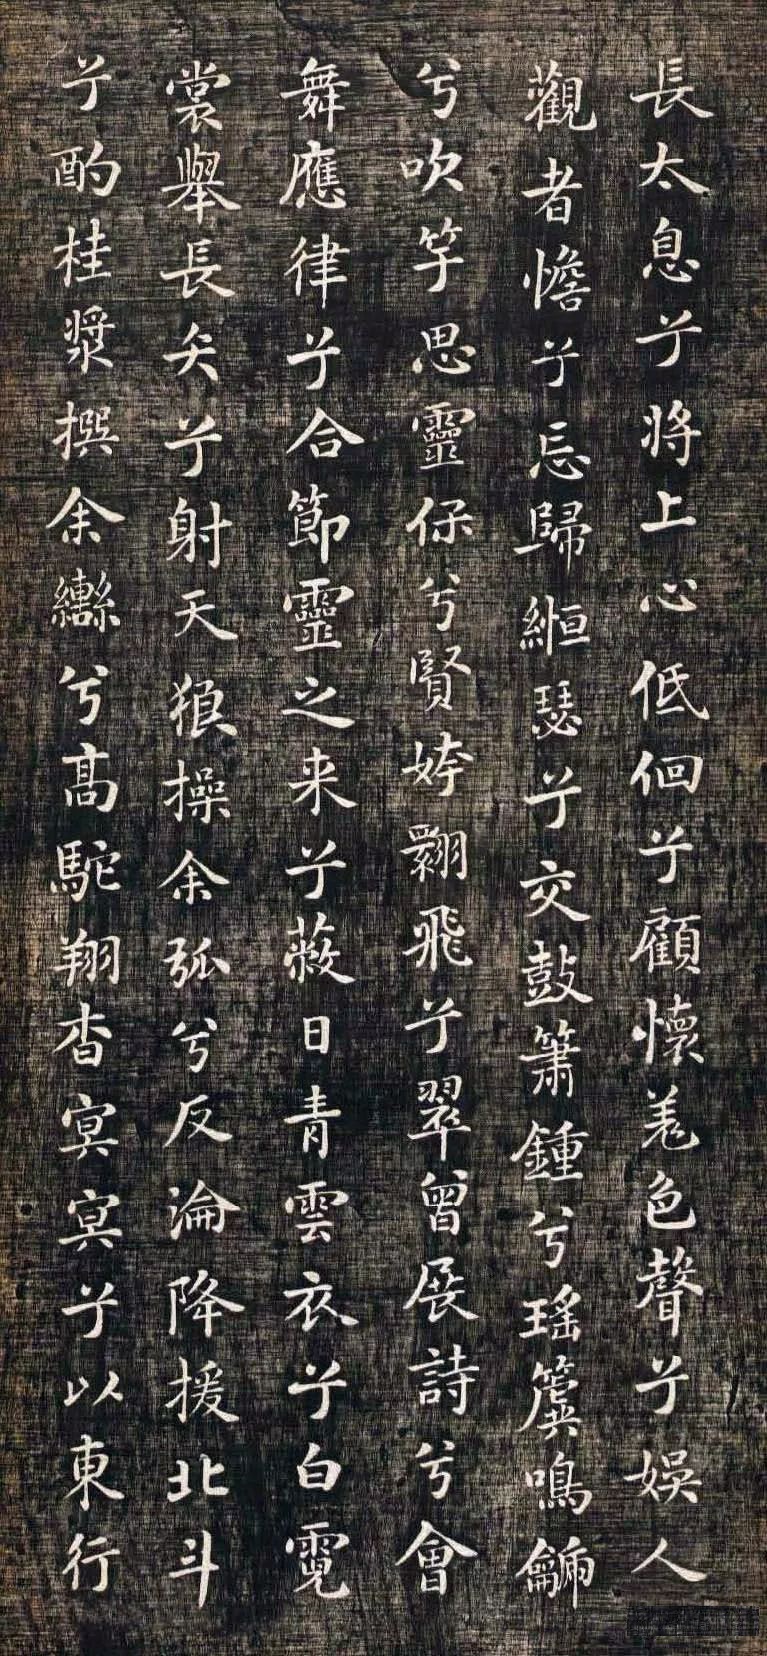 長太息兮将上心低佪兮顧懷羌色聲兮娛人
觀者憺兮忘歸緪瑟兮交鼓簫鍾兮瑤簴鳴
兮吹竽思靈保兮賢姱翾飛兮翠曾展詩兮會
舞應律兮合節靈之来兮蔽日青雲衣兮白霓
裳舉長矢兮射天狼操余弧兮反淪降援北斗
兮酌桂漿撰余轡兮高駝翔杳冥冥兮以東行